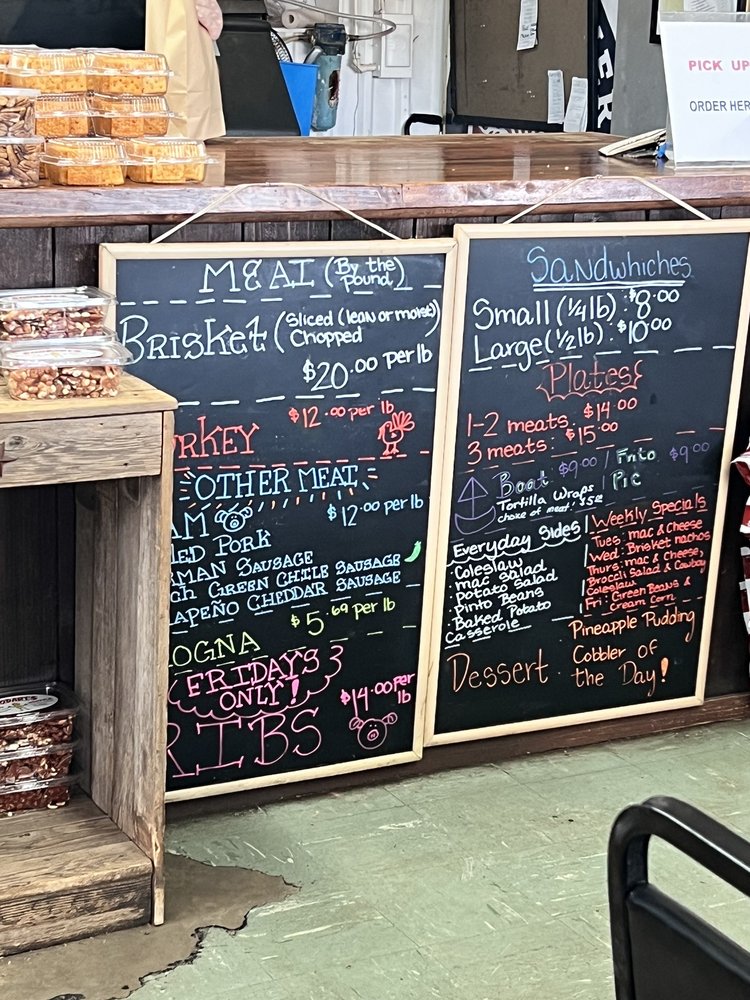 PICK UP
ORDER HERE
MEAT (By the Pound)
BRISKET (Sliced (lean or moist)
Chopped
$20.00 per lb
$12.00 per lb
RKEY
OTHER MEAT
AM
$12.00 per lb
LED PORK
RMAN SAUSAGE
CH GREEN CHILE SAUSAGE
APEÑO CHEDDAR SAUSAGE
$5.69 per lb
OGNA
FRIDAY'S
ONLY!
$14.00 Per lb
RIBS
Sandwhiches
Small (1/4 lb) : $8.00
Large (1/2 lb) : $10.00
Plates
1-2 meats : $14.00
3 meats : $15.00
Boat $9.00 / Frito Pie $9.00
Tortilla Wraps
choice of meat:
Everyday Sides
· Coleslaw
· mac salad
· potato Salad
· Pinto Beans
· Baked Potato
Casserole
Weekly Specials
Tues: mac & Cheese
Wed: Brisket nachos
Thurs: mac & Cheese,
Broccli Salad & Cowboy
Coleslaw
Fri: Green Beans &
Cream Corn
Dessert · Pineapple Pudding
· Cobbler of
the Day!